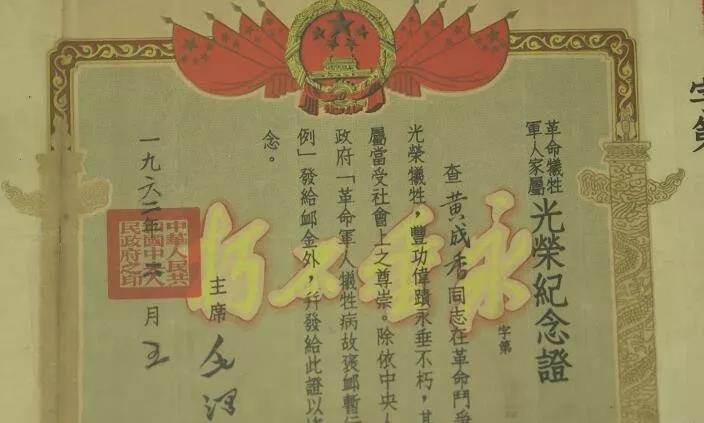 字第
革命犧牲
軍人家屬
光榮紀念證
字第
查黃成秀同志在革命鬥爭
光榮犧牲，豐功偉蹟永垂不朽，其
屬當受社會上之尊崇。除依中央人
政府「革命軍人犧牲病故褒卹暫行
例」發給卹金外，幷發給此證以資
念。
主席
毛澤
一九六二年 月
中華人民共
和國中央人
民政府之印
永垂不朽